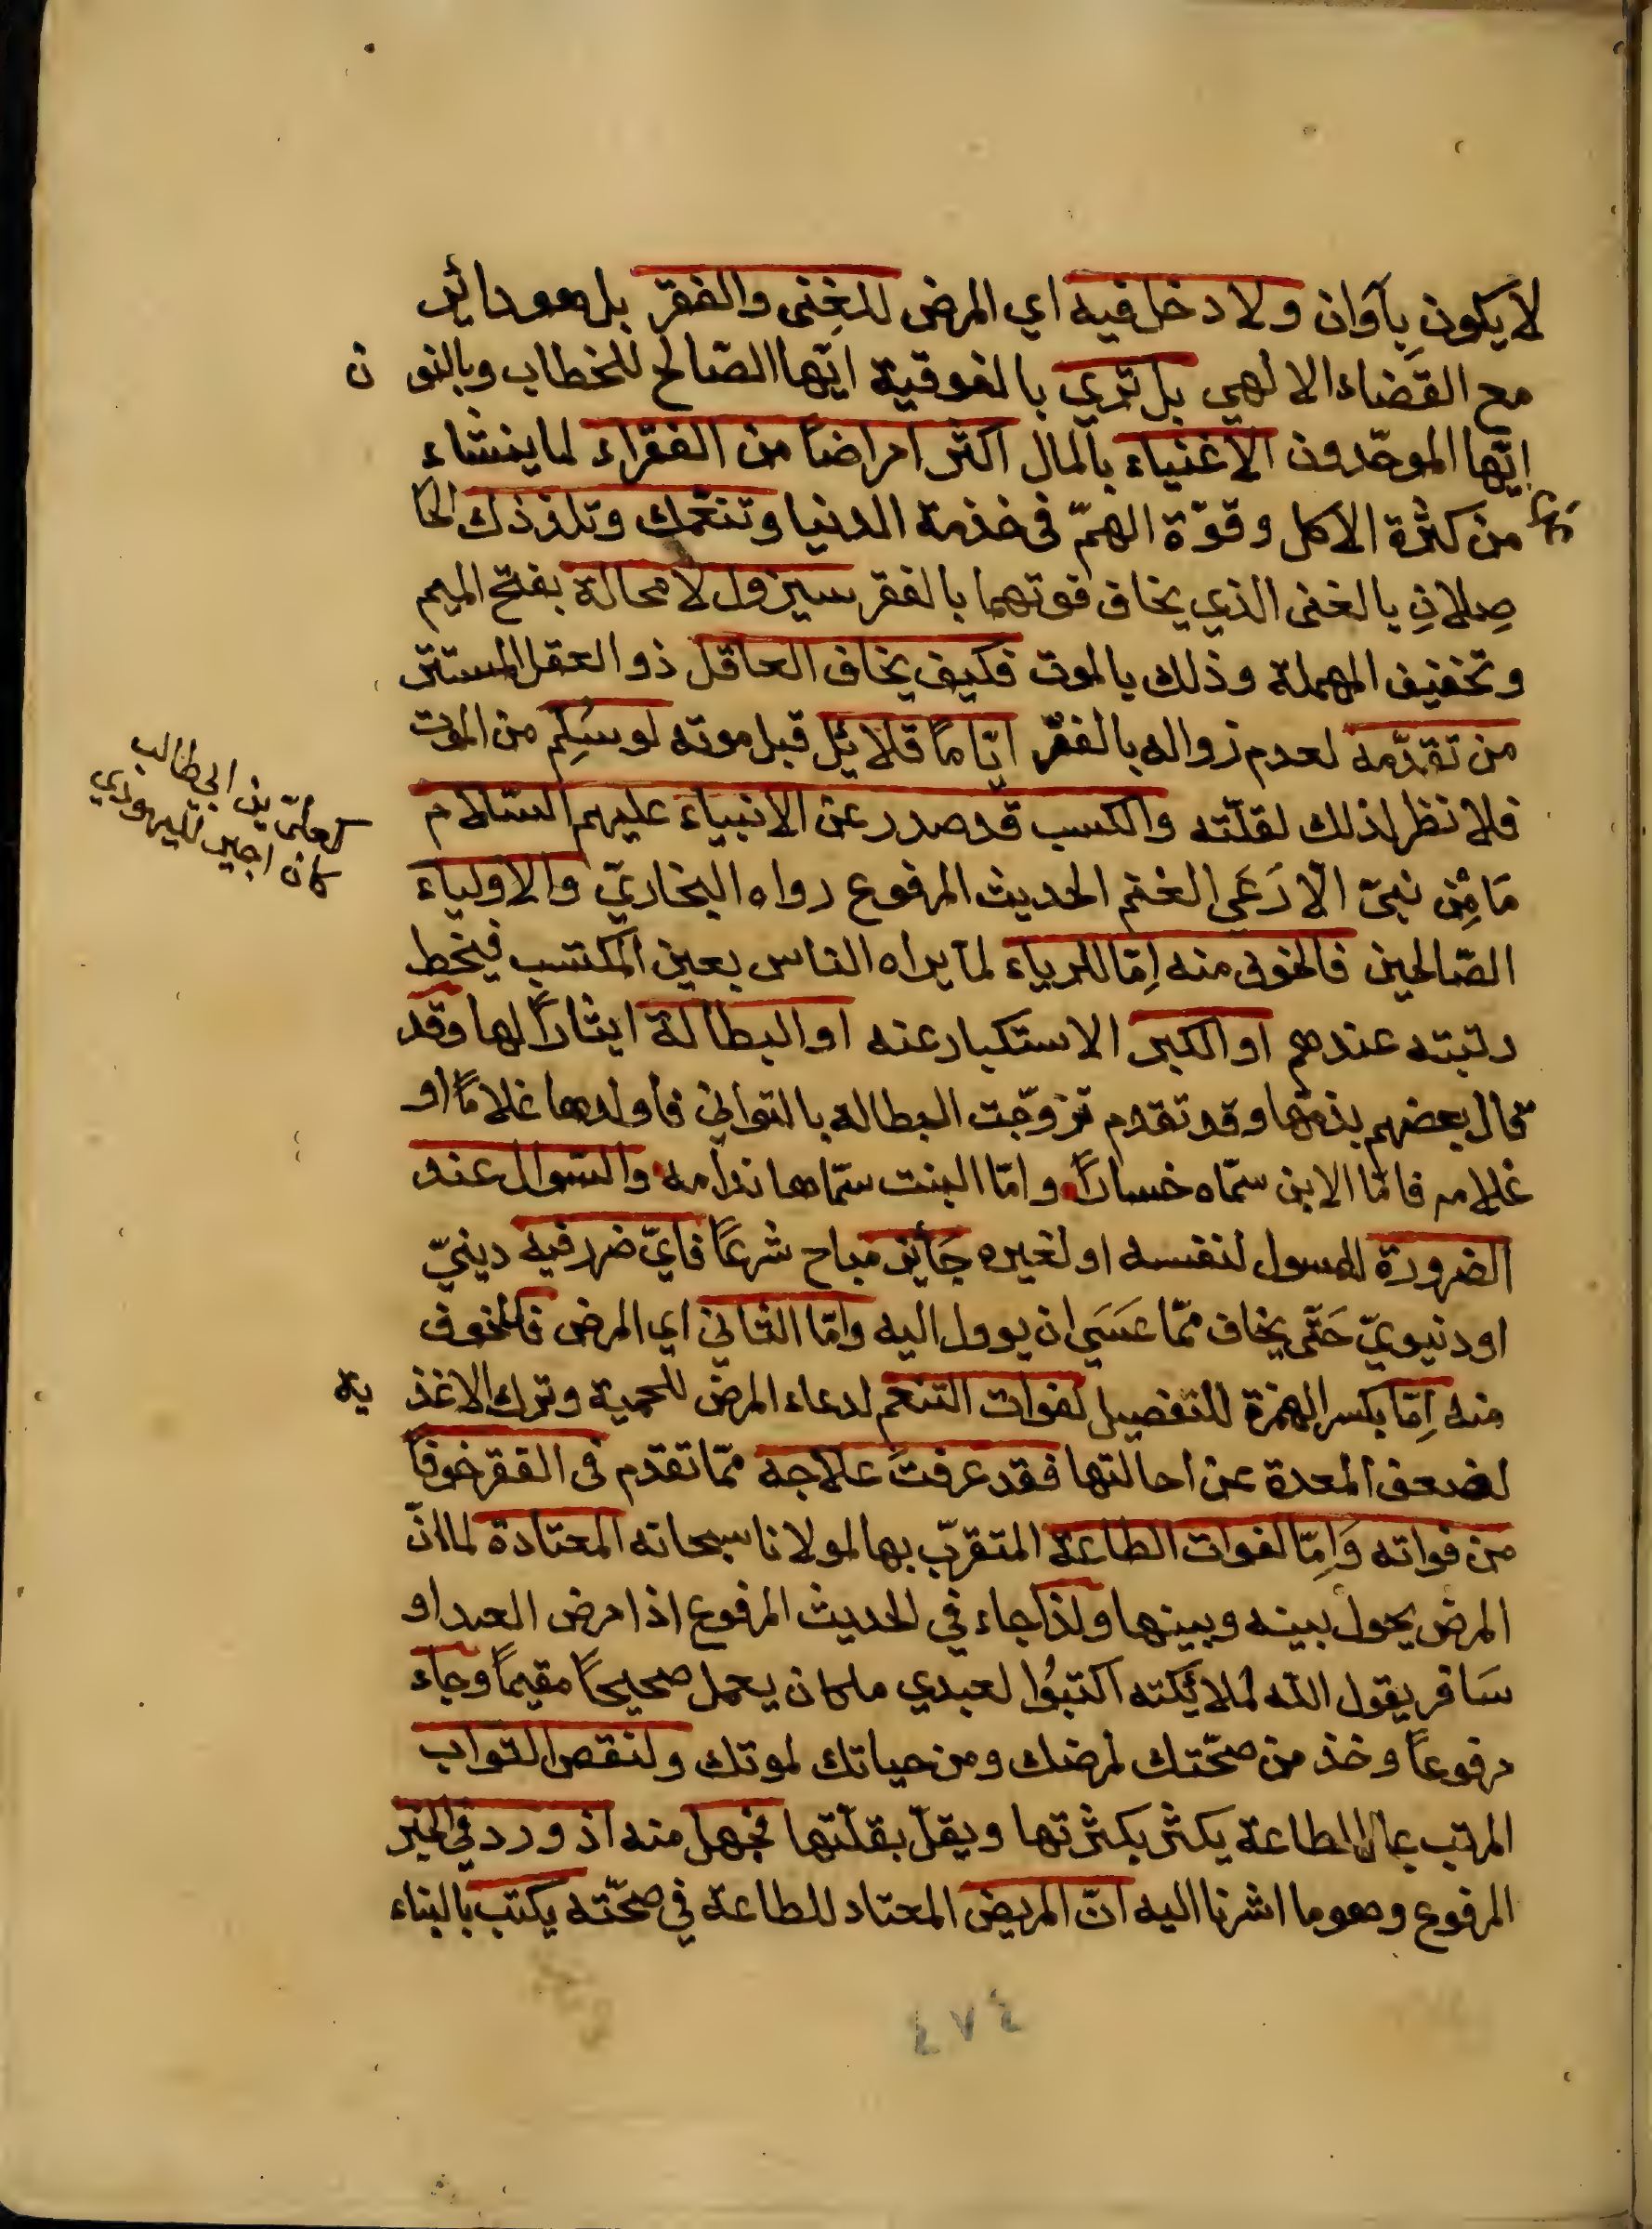 لا يكون بآوان ولا دخل فيه اي المرض للغِنى والفقر بل هو دائر
مع القضاء الالهي بل تري بالفوقية ايّها الصّالح للخطاب وبالنو ن
ايّها الموحّدون الاغنياء بالمال اكثر امراضاً من الفقراء لما ينشاء
من كثرة الاكل وقوّة الهمّ فى خذمة الدنيا وتنعّمك وتلذذك الحا
صِلانِ بالغنى الذي يخاف فوتهما بالفقر سيزول لا محالة بفتح الميم
وتخفيف المهملة وذلك بالموت فكيف يخاف العاقل ذو العقل المستتر
من تقدّمه لعدم زواله بالفقر ايّاماً قلائل قبل موته لو سَلِم من الموت
فلا نظر لذلك لقلّته والكسب قد صدر عن الانبياء عليهم السّلام
مَا مِن نبىّ الّا رَعَي الغنم الحديث المرفوع رواه البخاريّ والاولياء
الصّالحين فالخوف منه اِمّا للرياء لما يراه الناس بعين المكتسب فيخط
رتبته عندهم او الكبر الاستكبار عنه او البطالة ايثاراً لها وقد
قال بعضهم بذمّها وقد تقدم تزوّجت البطاله بالتواني فاولدها غلاماً او
غلامه فامّا الابن سمّاه خساراً وامّا البنت سمّاها ندامه والسّوال عند
الضرورة للمسول لنفسه او لغيره جَأيز مباح شرعاً فايّ ضرر فيه دينيّ
او دنيويّ حَتّى يخاف ممّا عَسَي ان يوول اليه وامّا الثاني اي المرض فالخوف
منه اِمّا بكسر الهمزة للتفصيل لفوات التنعم لدعاء المرض للحمية وترك الاغذ يه
لضعف المعدة عن احالتها فقد عرفتَ علاجه ممّا تقدم فى الفقر خوفاً
من فواته وَاِمّا لفوات الطاعة المتقرّب بها لمولانا سبحانه المعتادة لما انّ
المرض يحول بينه وبينها ولذا جاء في الحديث المرفوع اذا مرض العبد او
سَافر يقول الله لملائكته اكتبُوا لعبدي ما كان يعمل صحيحاً مقيماً وجاء
مرفوعاً وخذ من صحّتك لمرضك ومن حياتك لموتك ولنقص الثواب
المرتب على الطاعة يكثر بكثرتها ويقلّ بقلّتها فجهل منه اذ ورد في الخبر
المرفوع وهو ما اشرنا اليه انّ المريض المعتاد للطاعة في صحّته يكتب بالبناء
كعلىّ بن ابي طالب
كان اجير لليهودي
٤٧٤